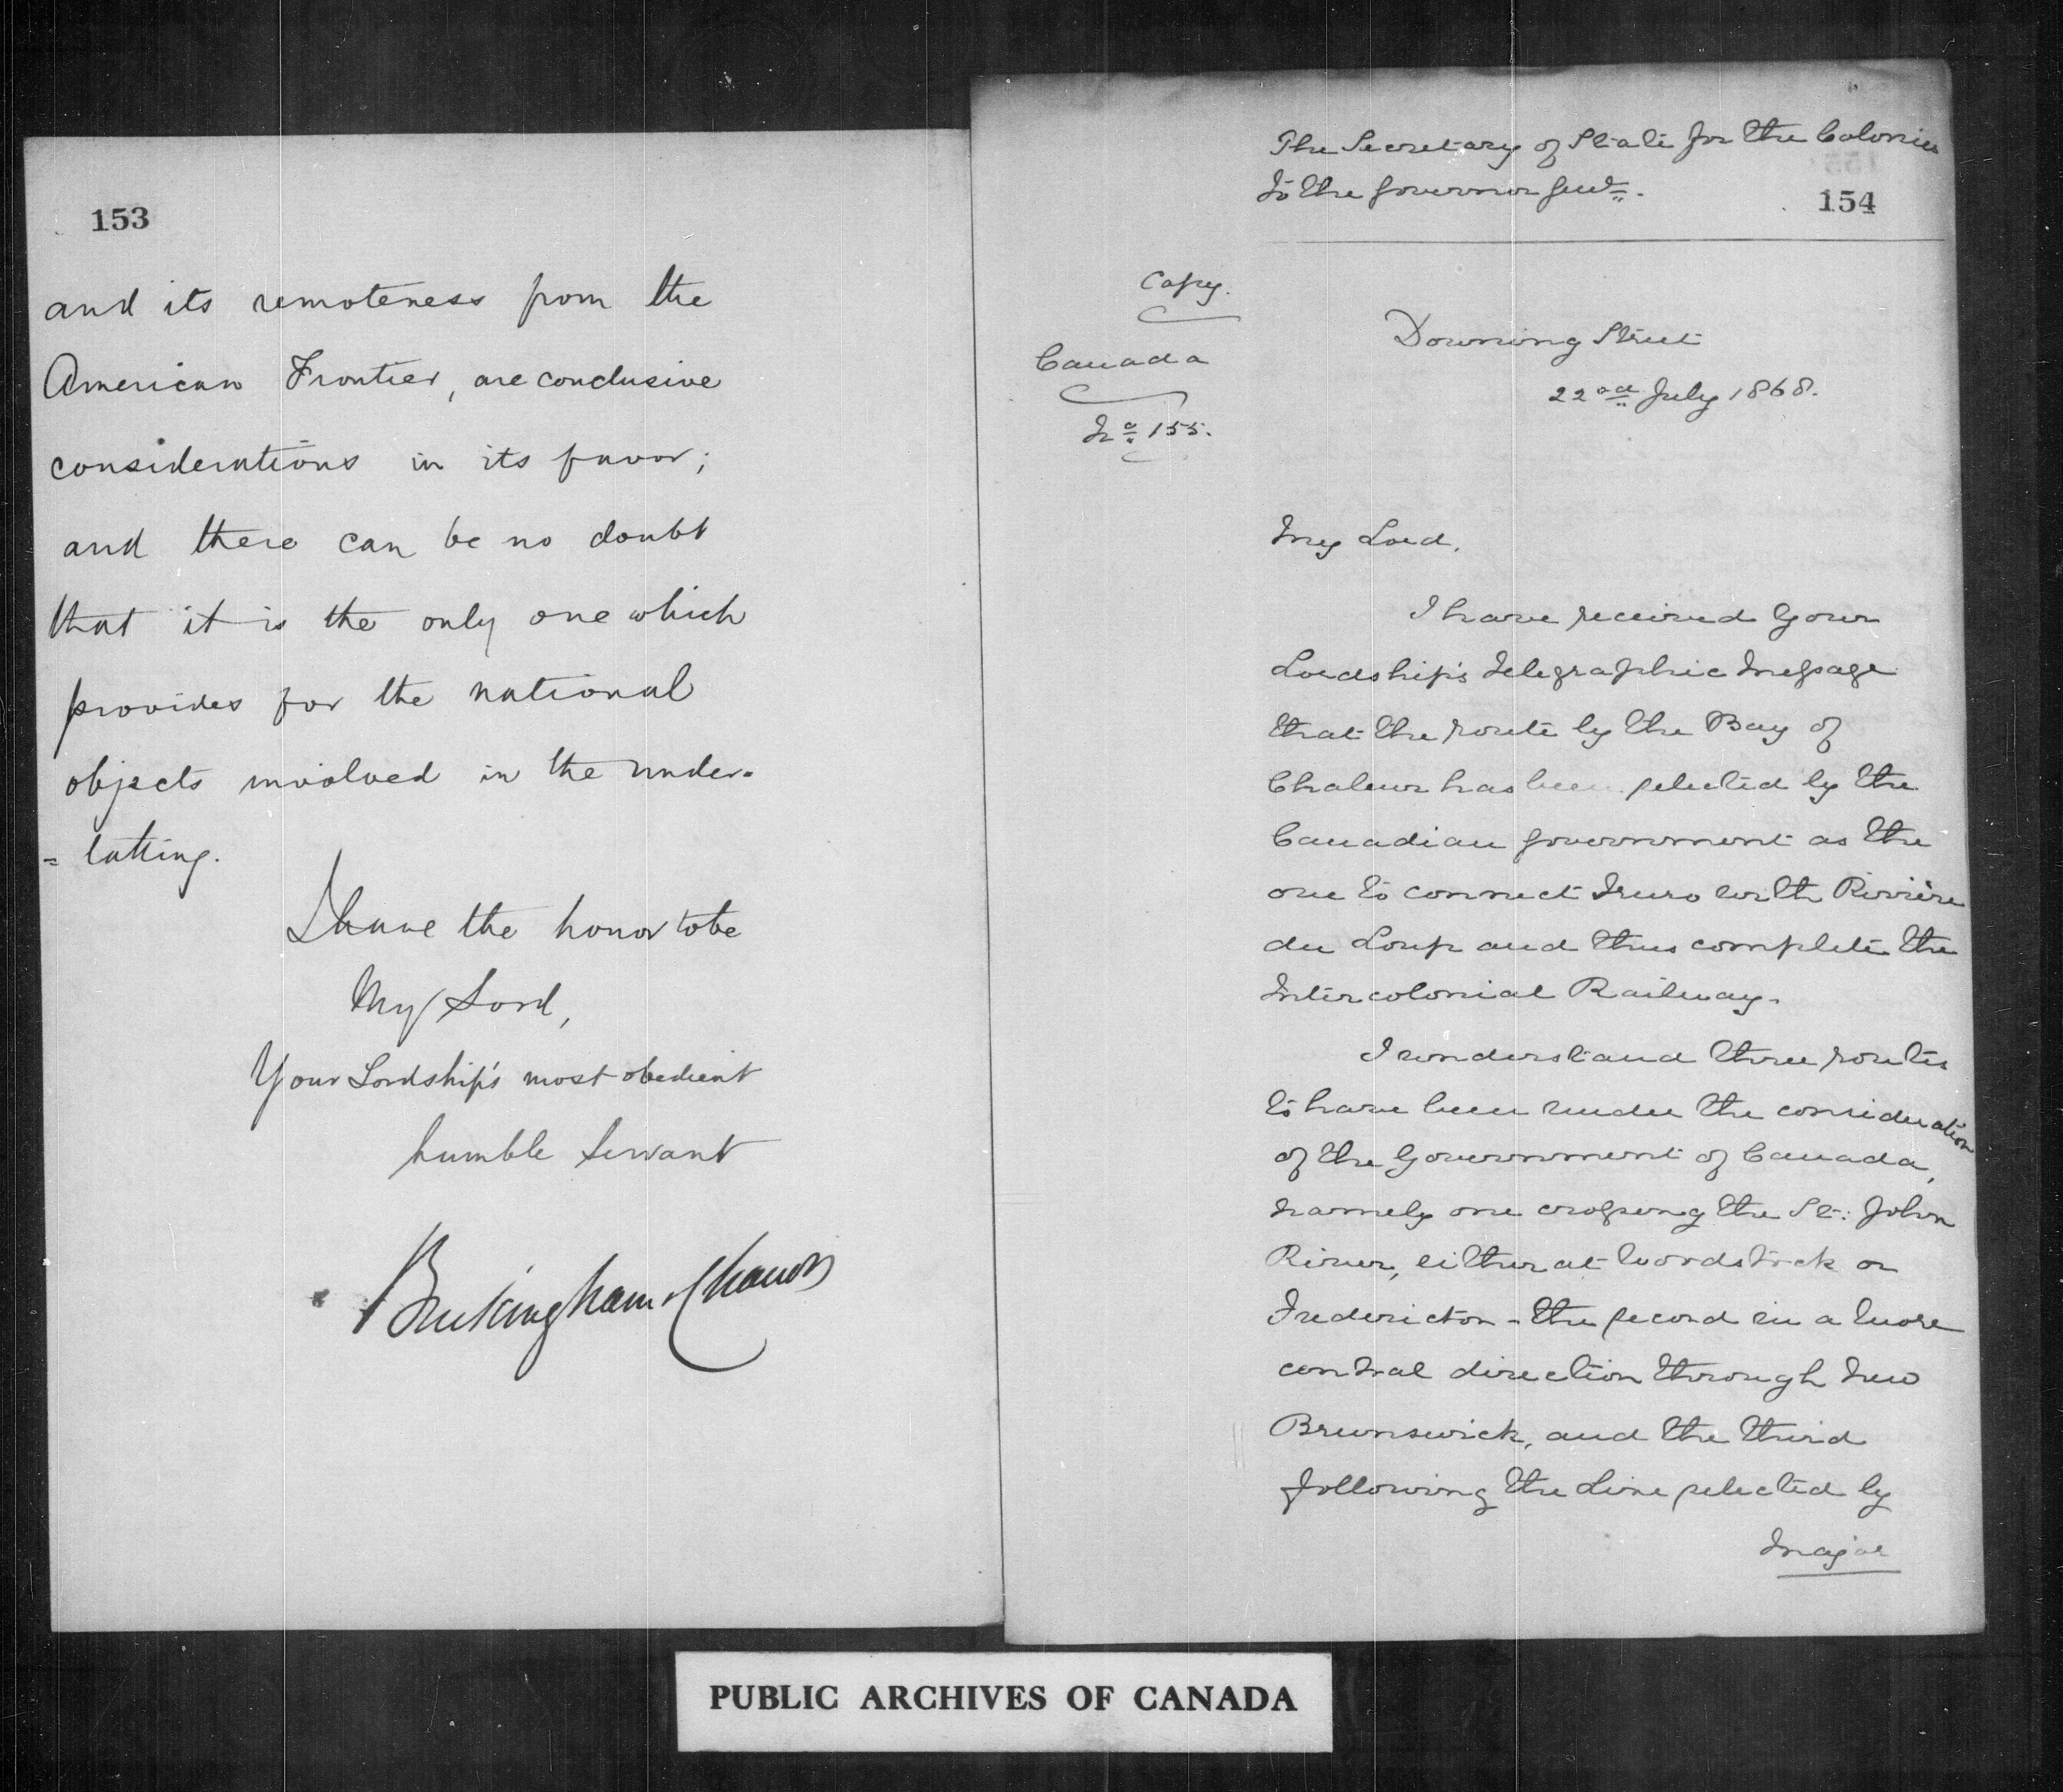 153
and its remoteness from the
American Frontier, are conclusive
considerations in its favor;
and there can be no doubt
that it is the only one which
provides for the national
objects involved in the under-
=taking.
I have the honor to be
My Lord,
Your Lordship's most obedient
humble Servant
Buckingham & Chandos
The Secretary of State for the Colonies
to the Governor Genl.
154
Copy.
Canada
No 155.
Downing Street
22nd July 1868.
My Lord,
I have received Your
Lordship's telegraphic message
that the route by the Bay of
Chaleur has been selected by the
Canadian Government as the
one to connect Truro with Rivière
du Loup and thus complete the
Intercolonial Railway.
I understand three routes
to have been under the consideration
of the Government of Canada,
namely one crossing the St: John
River, either at Woodstock or
Fredericton - the second in a more
central direction through New
Brunswick, and the third
following the Line selected by
Major
PUBLIC ARCHIVES OF CANADA